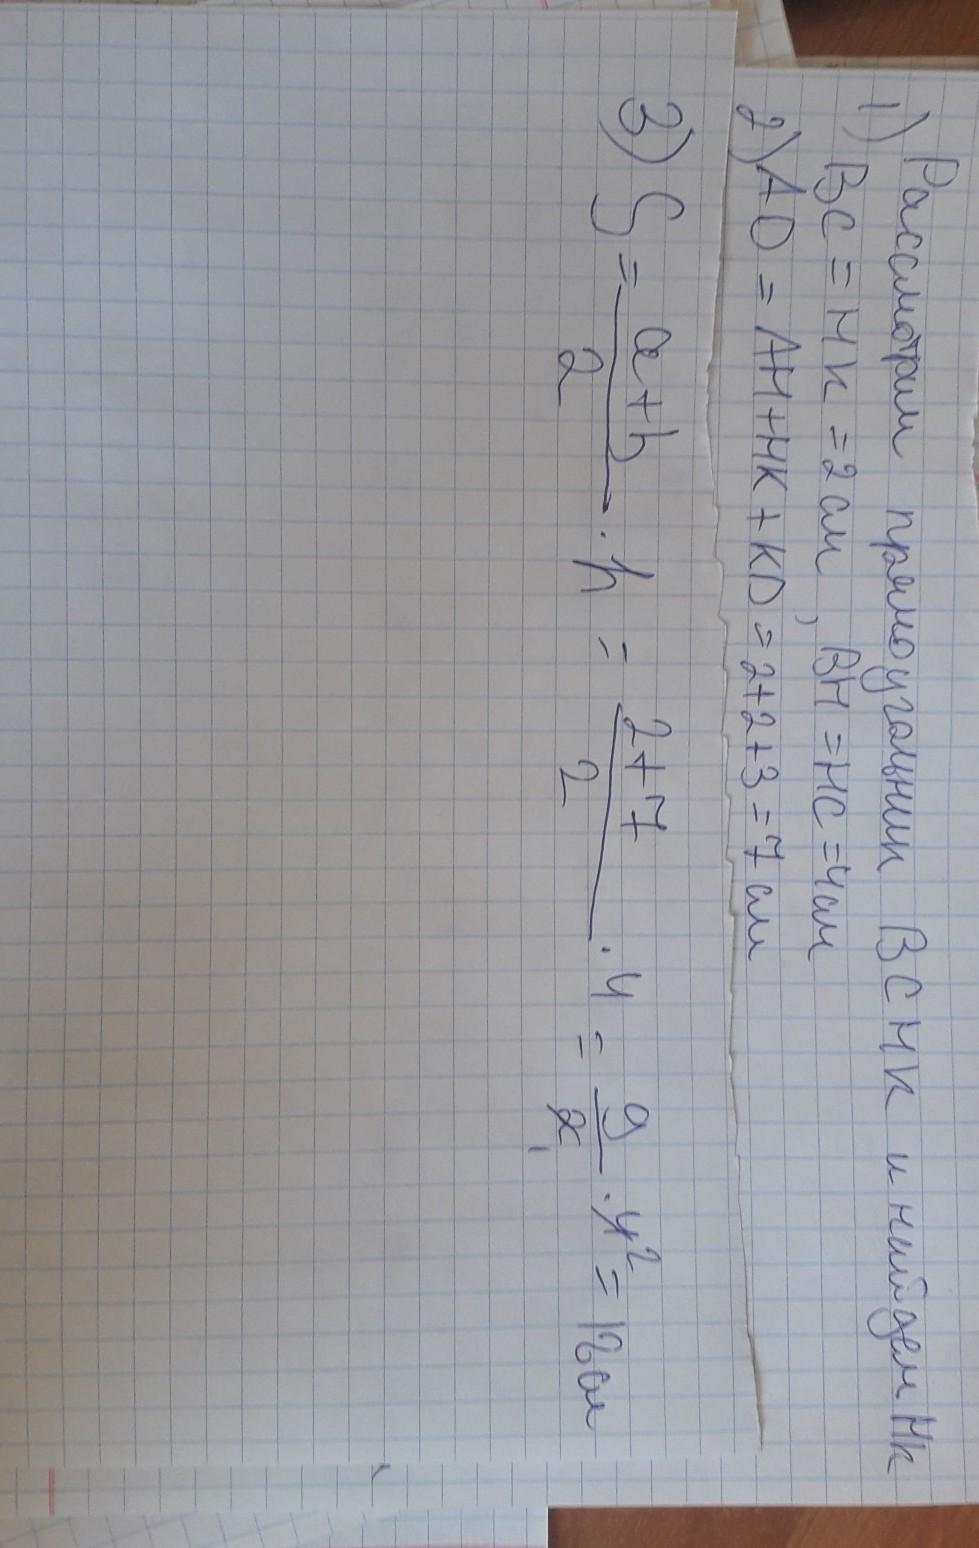 1) Рассмотрим прямоугольник BCHK и найдем HK
BC = HK = 2 см, BH = HC = 4 см
2) AD = AH + HK + KD = 2 + 2 + 3 = 7 см
3) S = a+b/2 · h = 2+7/2 · 4 = 9/2 · 4² = 18 см